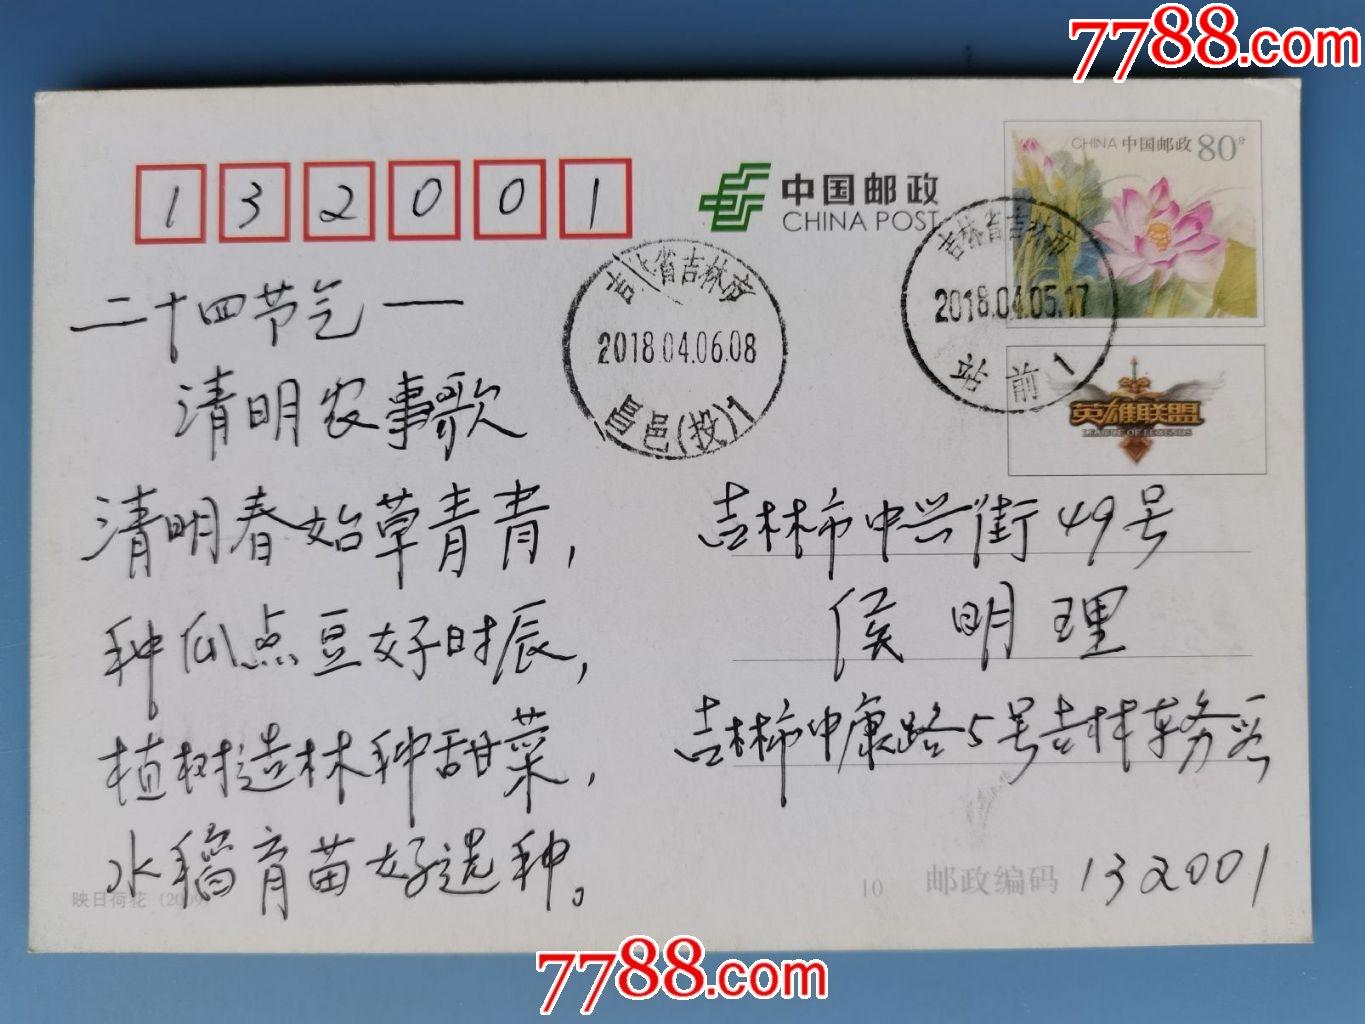 7788.com
CHINA 中国邮政 80分
132001
中国邮政
CHINA POST
吉林省吉林市
2018.04.05.17
站前1
吉林省吉林市
2018.04.06.08
昌邑(投)1
英雄联盟
LEAGUE OF LEGENDS
二十四节气一
清明农事歌
清明春始草青青,
种瓜点豆好时辰,
植树造林种甜菜,
水稻育苗好选种。
吉林市中兴街49号
侯明理
吉林市中康路5号吉林车务段
映日荷花 (2009)
10
邮政编码 132001
7788.com